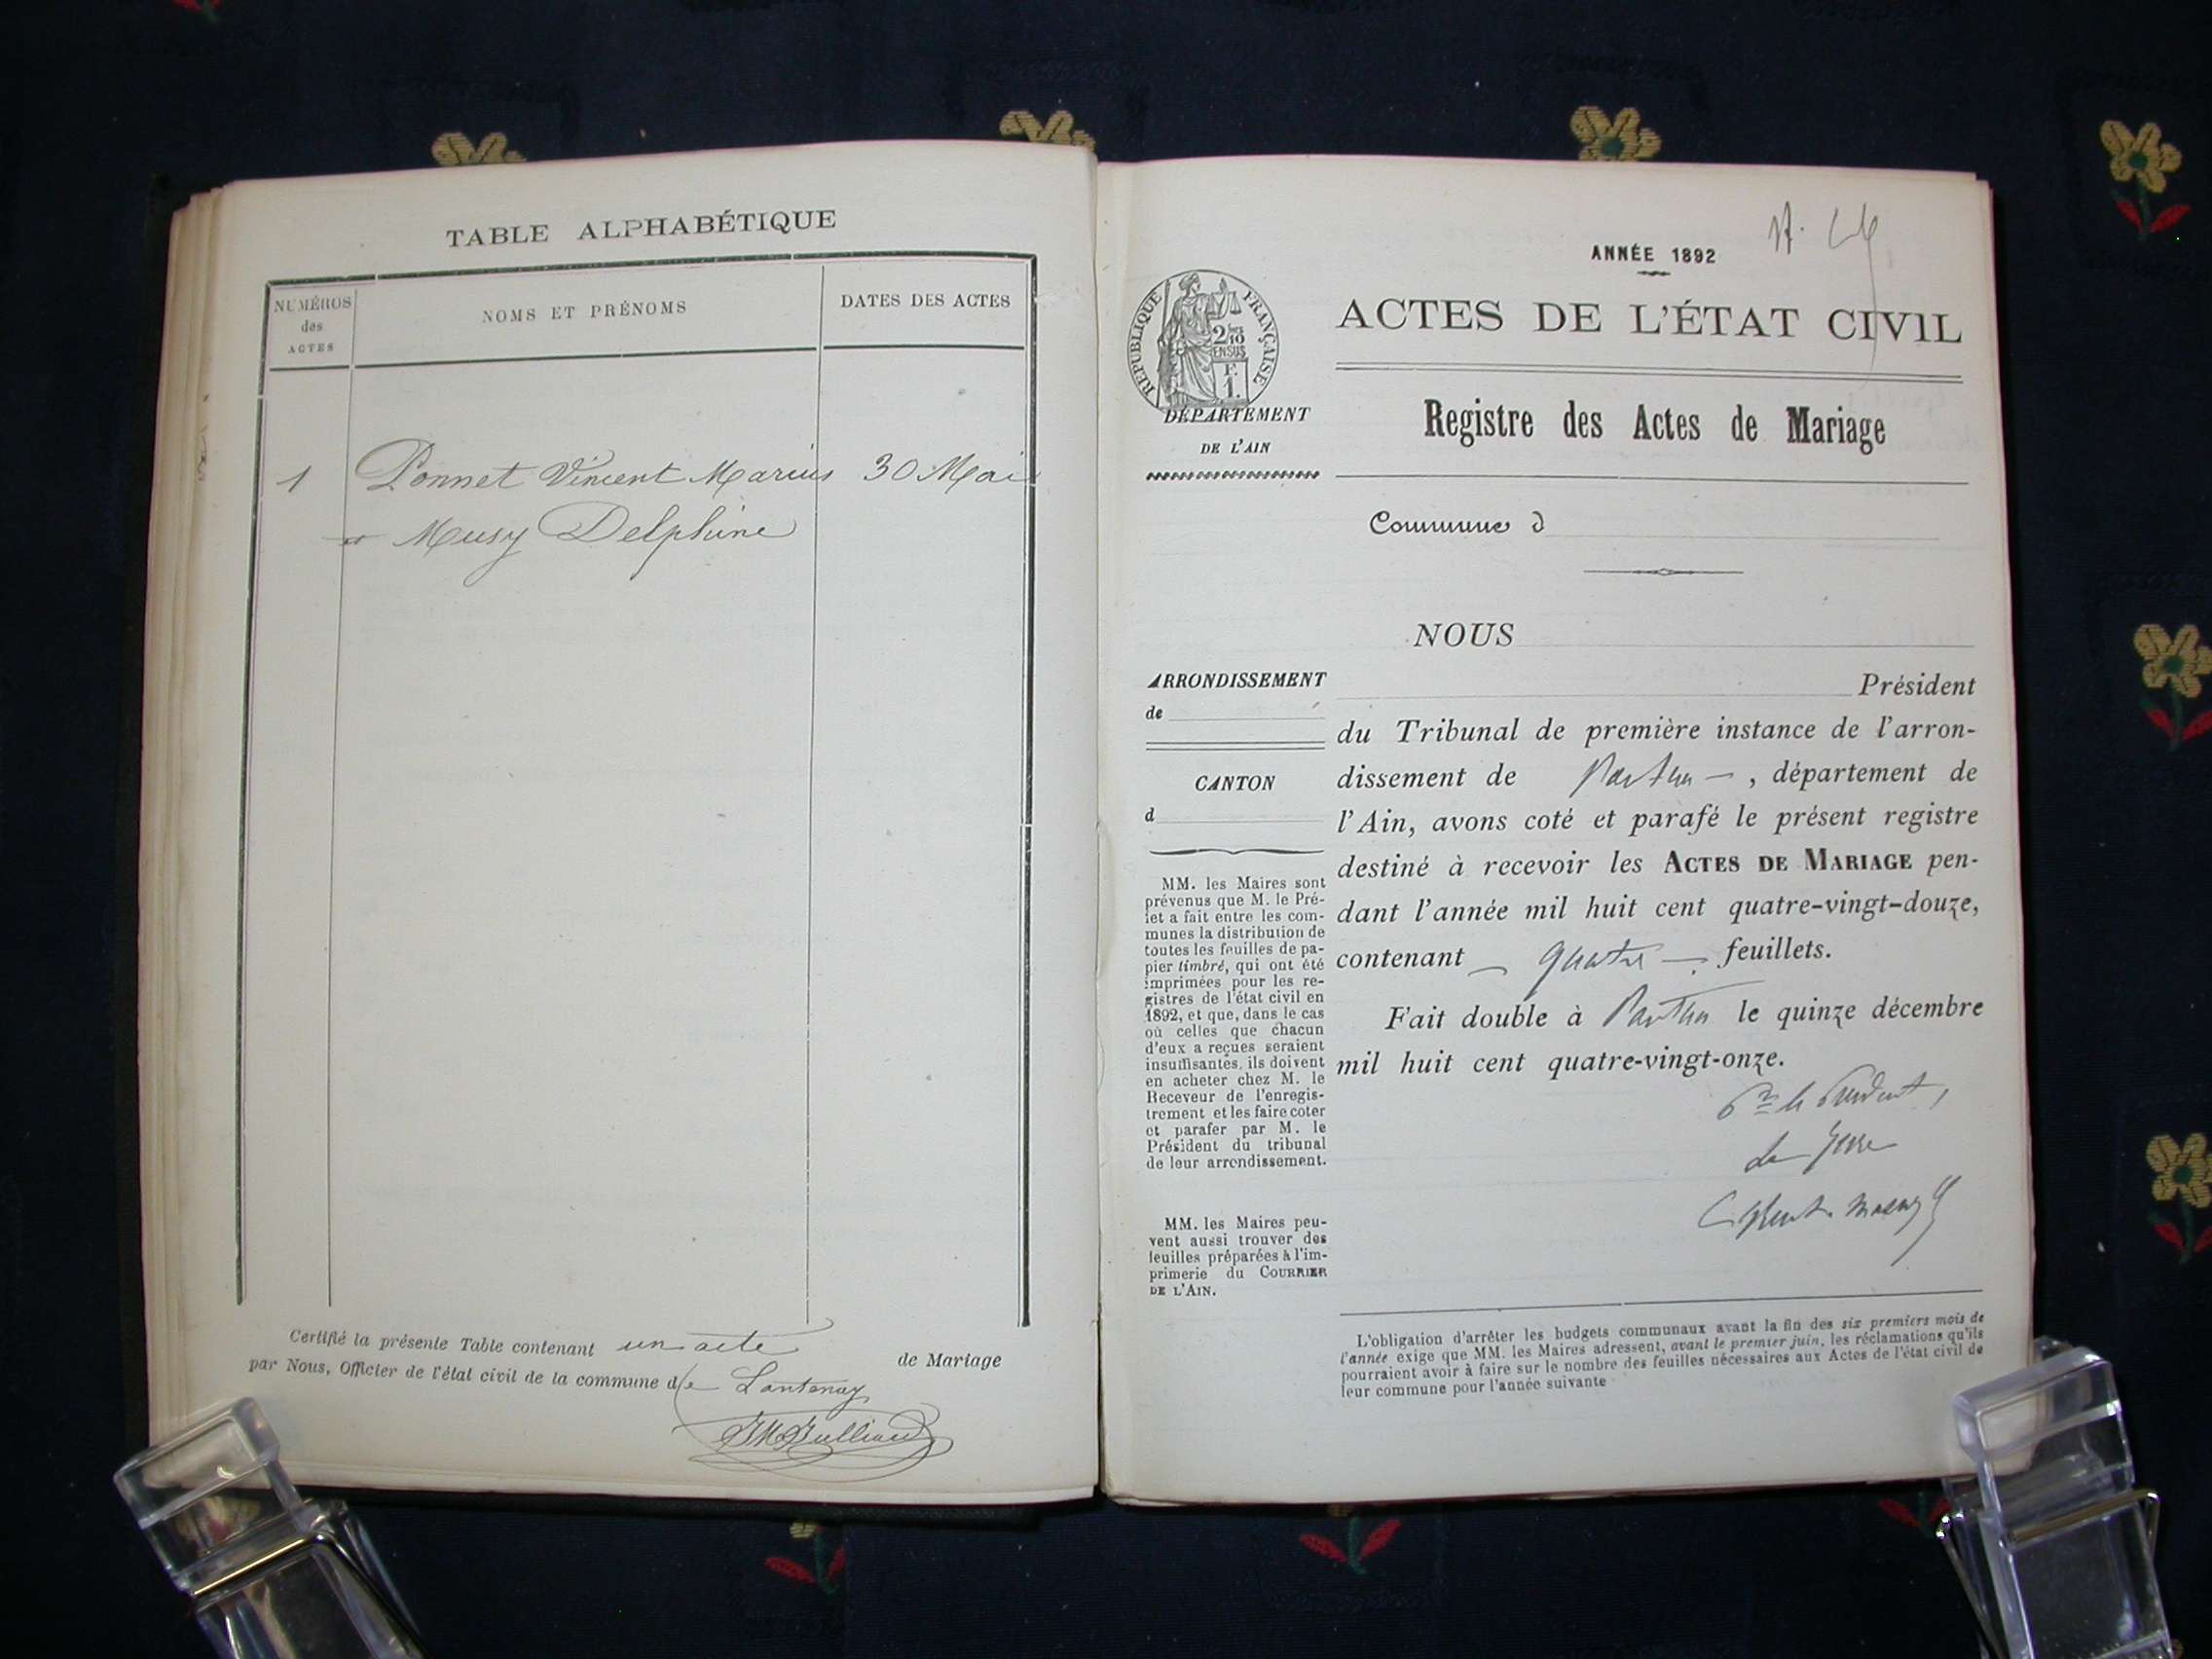 TABLE ALPHABÉTIQUE
NUMÉROS
des
ACTES
NOMS ET PRÉNOMS
DATES DES ACTES
1 Ponnet Vincent Marius 30 Mai
et Musy Delphine
Certifié la présente Table contenant un acte de Mariage
par Nous, Officier de l'état civil de la commune de Lantenay
ANNÉE 1892
RÉPUBLIQUE FRANÇAISE
2/10
EN SUS
F.
1.
ACTES DE L'ÉTAT CIVIL
DÉPARTEMENT
DE L'AIN
Registre des Actes de Mariage
Commune d
NOUS
ARRONDISSEMENT
de
CANTON
d
MM. les Maires sont
prévenus que M. le Pré-
fet a fait entre les com-
munes la distribution de
toutes les feuilles de pa-
pier timbré, qui ont été
imprimées pour les re-
gistres de l'état civil en
1892, et que, dans le cas
où celles que chacun
d'eux a reçues seraient
insuffisantes, ils doivent
en acheter chez M. le
Receveur de l'enregis-
trement et les faire coter
et parafer par M. le
Président du tribunal
de leur arrondissement.
MM. les Maires peu-
vent aussi trouver des
feuilles préparées à l'im-
primerie du COURRIER
DE L'AIN.
Président
du Tribunal de première instance de l'arron-
dissement de Nantua, département de
l'Ain, avons coté et parafé le présent registre
destiné à recevoir les ACTES DE MARIAGE pen-
dant l'année mil huit cent quatre-vingt-douze,
contenant quatre feuillets.
Fait double à Nantua le quinze décembre
mil huit cent quatre-vingt-onze.
Pr le Président,
L'obligation d'arrêter les budgets communaux avant la fin des six premiers mois de
l'année exige que MM. les Maires adressent, avant le premier juin, les réclamations qu'ils
pourraient avoir à faire sur le nombre des feuilles nécessaires aux Actes de l'état civil de
leur commune pour l'année suivante